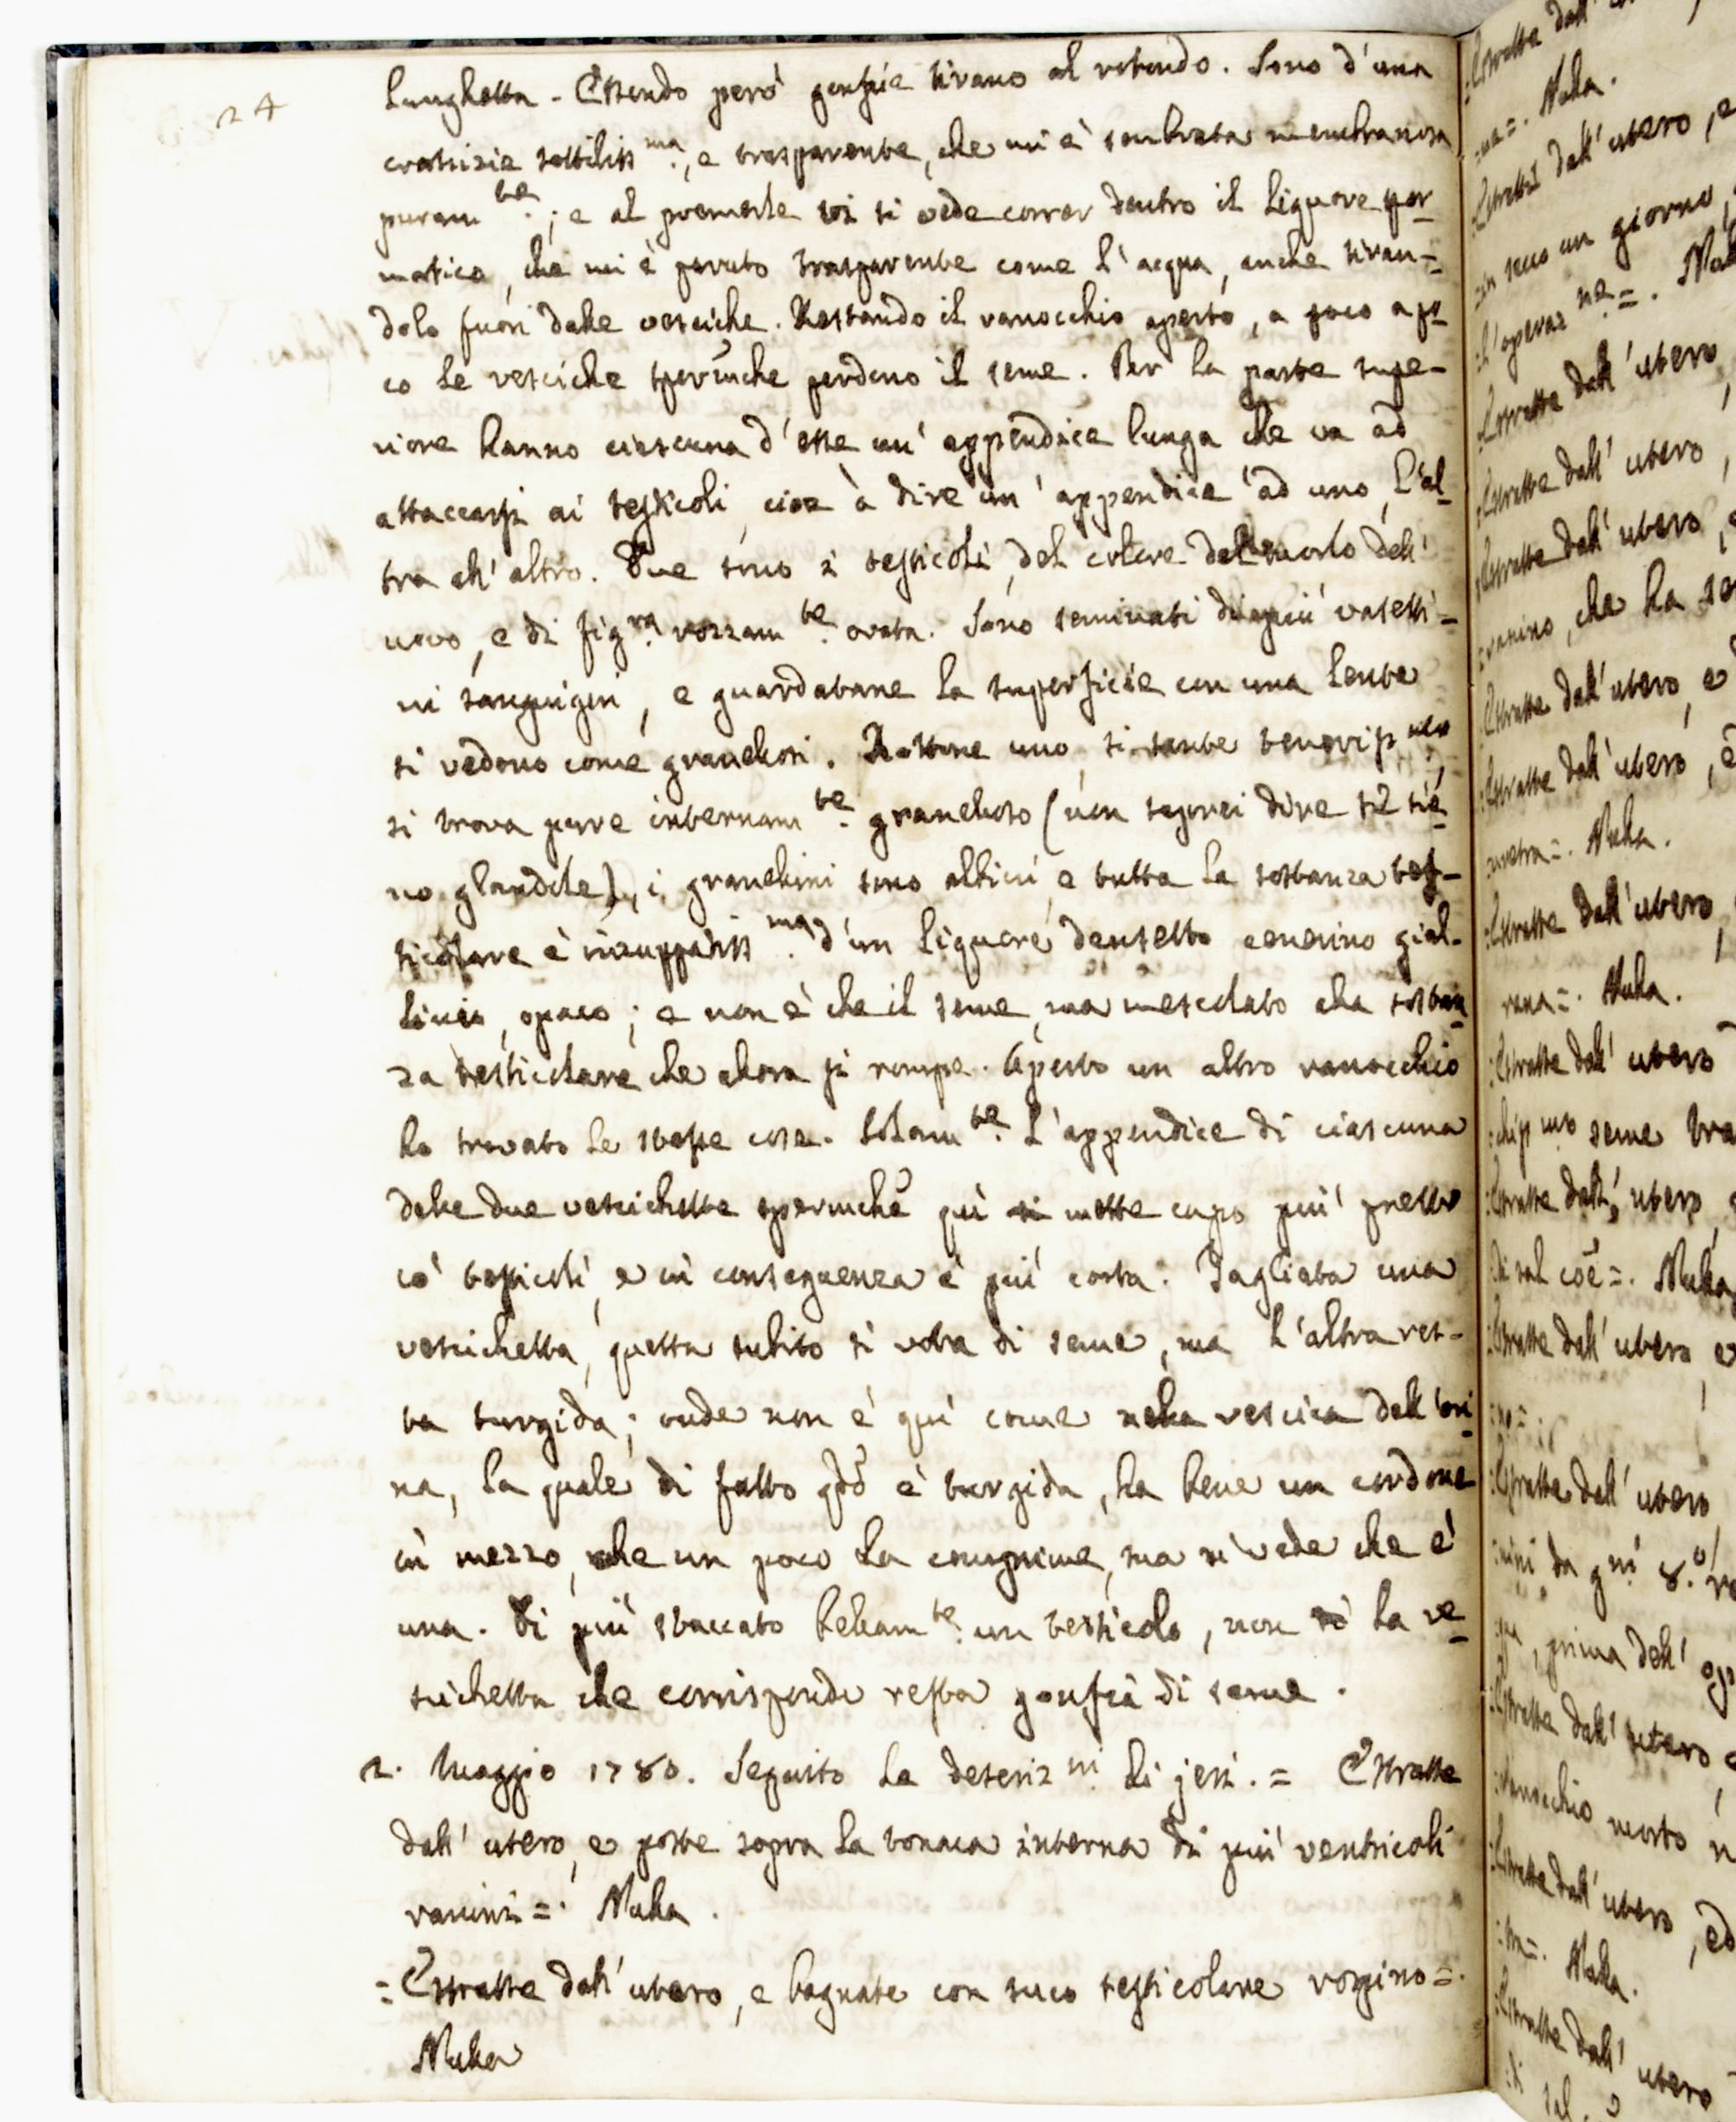 24
lunghetta. Essendo però gonfie tirano al rotondo. Sono d'una
crassizie sottiliss.ma, e trasparente, che mi è sembrata membranosa
puram.te; e al premerle vi si vede correr dentro il liquore sper-
matico, che mi è paruto trasparente come l'acqua, anche tiran-
dolo fuori dalle vesciche. Restando il ranocchio aperto, a poco a po-
co le vesciche sperm̃che perdono il seme. Per la parte supe-
riore hanno ciascuna d'esse un' appendice lunga che va ad
attaccarsi ai testicoli, cioè a dire un' appendice ad uno, l'al-
tra all' altro. Due sono i testicoli, del colore del tuorlo dell'
uovo, e di fig.ra rozzam.te ovata. Sono seminati di più vasetti-
ni sanguigni, e guardatane la superficie con una lente
si vedono come granellosi. Rottone uno, si sente teneriss.mo,
si trova pure internam.te granelloso (non saprei dire se sie-
no glandule), i granellini sono albicci e tutta la sostanza tes-
ticolare è inzuppatiss.ma d'un liquore densetto cenerino gial-
liccio, opaco; e non è che il seme, ma mescolato alla sostan-
za testicolare che allora si rompe. Aperto un altro ranocchio
ho trovato le stesse cose. Solam.te l'appendice di ciascuna
delle due vescichette sperm̃che qui mette capo più presso
co' testicoli, e in conseguenza è più corta. Tagliata una
vescichetta, questa subito si vota di seme, ma l'altra res-
ta turgida; onde non è qui come nella vescica dell' ori-
na, la quale di fatto qdo è turgida, ha bene un cordone
in mezzo, che un poco la comprime, ma si vede che è
una. Di più staccato bellam.te un testicolo, non la ve-
scichetta che corrisponde resta gonfia di seme.
2. Maggio 1780. Seguito la descriz.ni di jeri. = Estratte
dall' utero, e poste sopra la tonaca interna di più ventricoli
ranini =. Nulla.
= Estratte dall' utero, e bagnate con suco testicolare rospino =.
Nulla
Nulla.
dall' utero, e
giorno
Nul
dall' utero
dall' utero,
dall' utero,
che ha
dall' utero, e
dall' utero, è
Nulla.
dall' utero,
Nulla.
dall' utero
seme
dall' utero,
Nulla
dall' utero e
dall' utero
prima dell'
dall' utero
morto
dall' utero, ed
Nulla.
dall' utero